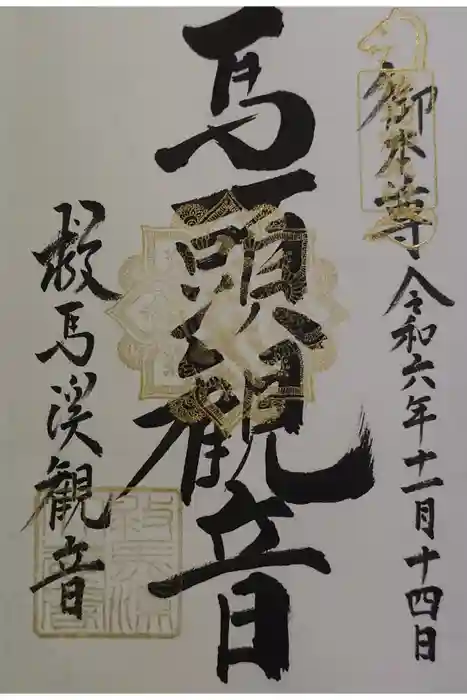 御本尊
令和六年十一月十四日
馬頭観音
救馬溪観音